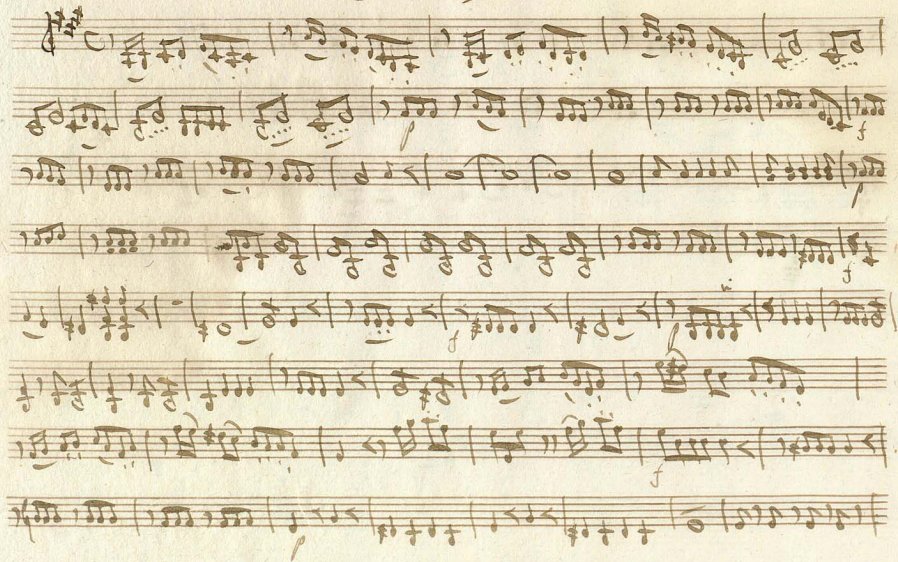 p
f
p
f
f
p
f
p